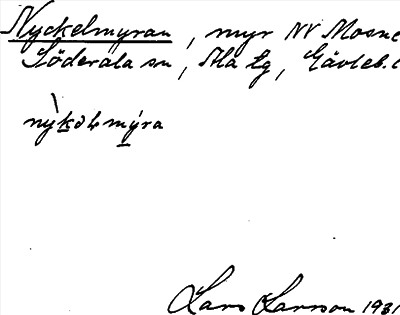 Nyckelmyran, myr NV Mosne
Söderala sn, Ala tg, Gävleb.l
nỳkəlmýra
Lars Larsson 1931